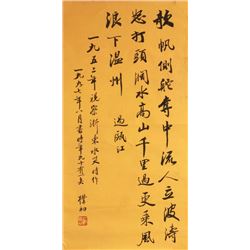 欹帆侧舵夺中流人立波涛
怒打头闸水高山千里过更乘风
浪下温州
过瓯江
一九五二年视察浙东水灾时作
一九九七年八月书时年九十有一矣
朴初